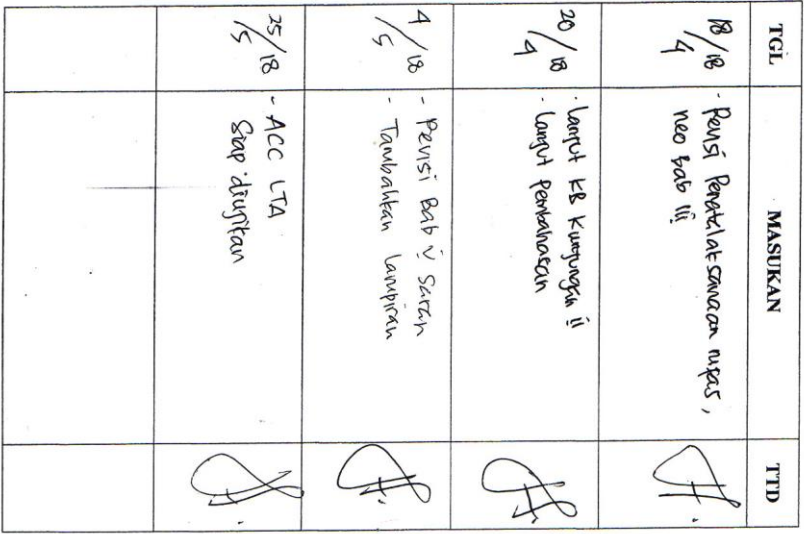 TGL MASUKAN TTD
18/18
4
- Revisi Penatalaksanaan nifas,
neo bab III
20/18
4
- Lanjut KB Kunjungan II
- Lanjut Pembahasan
4/18
5
- Revisi Bab V Saran
- Tambahkan lampiran
25/18
5
- ACC LTA
Siap diujikan